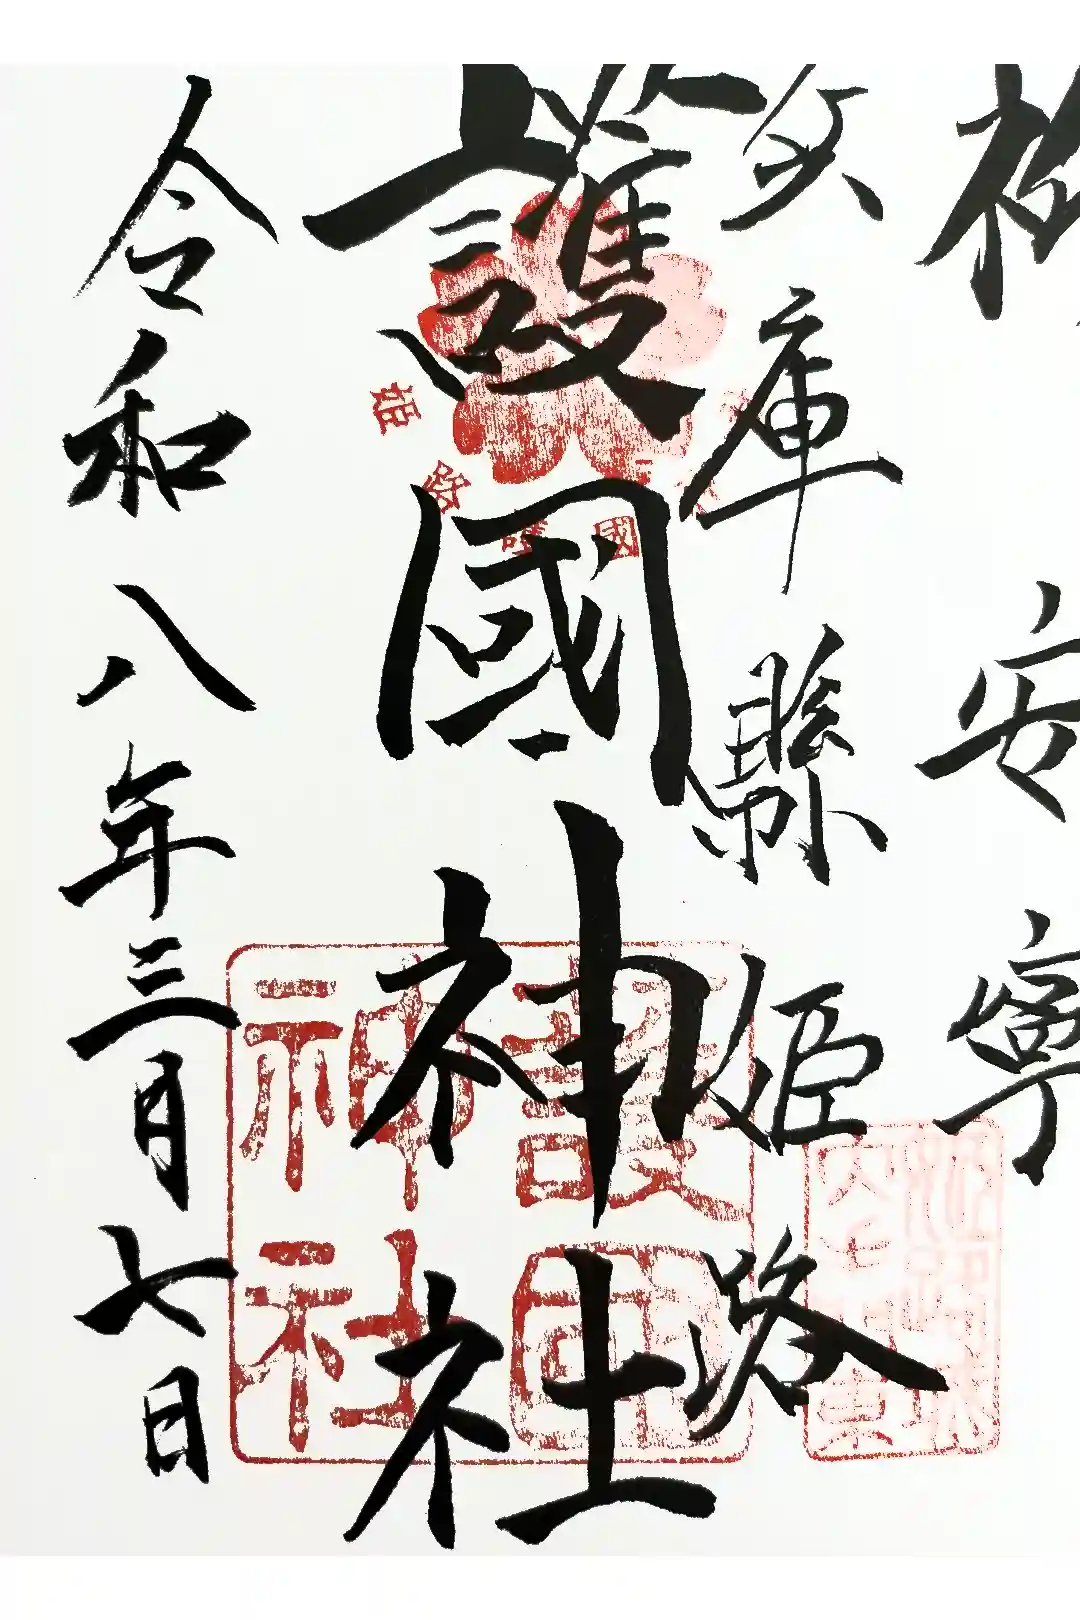 安寧
兵庫縣姫路
護國神社
令和八年三月七日
姫路護國
護國神社